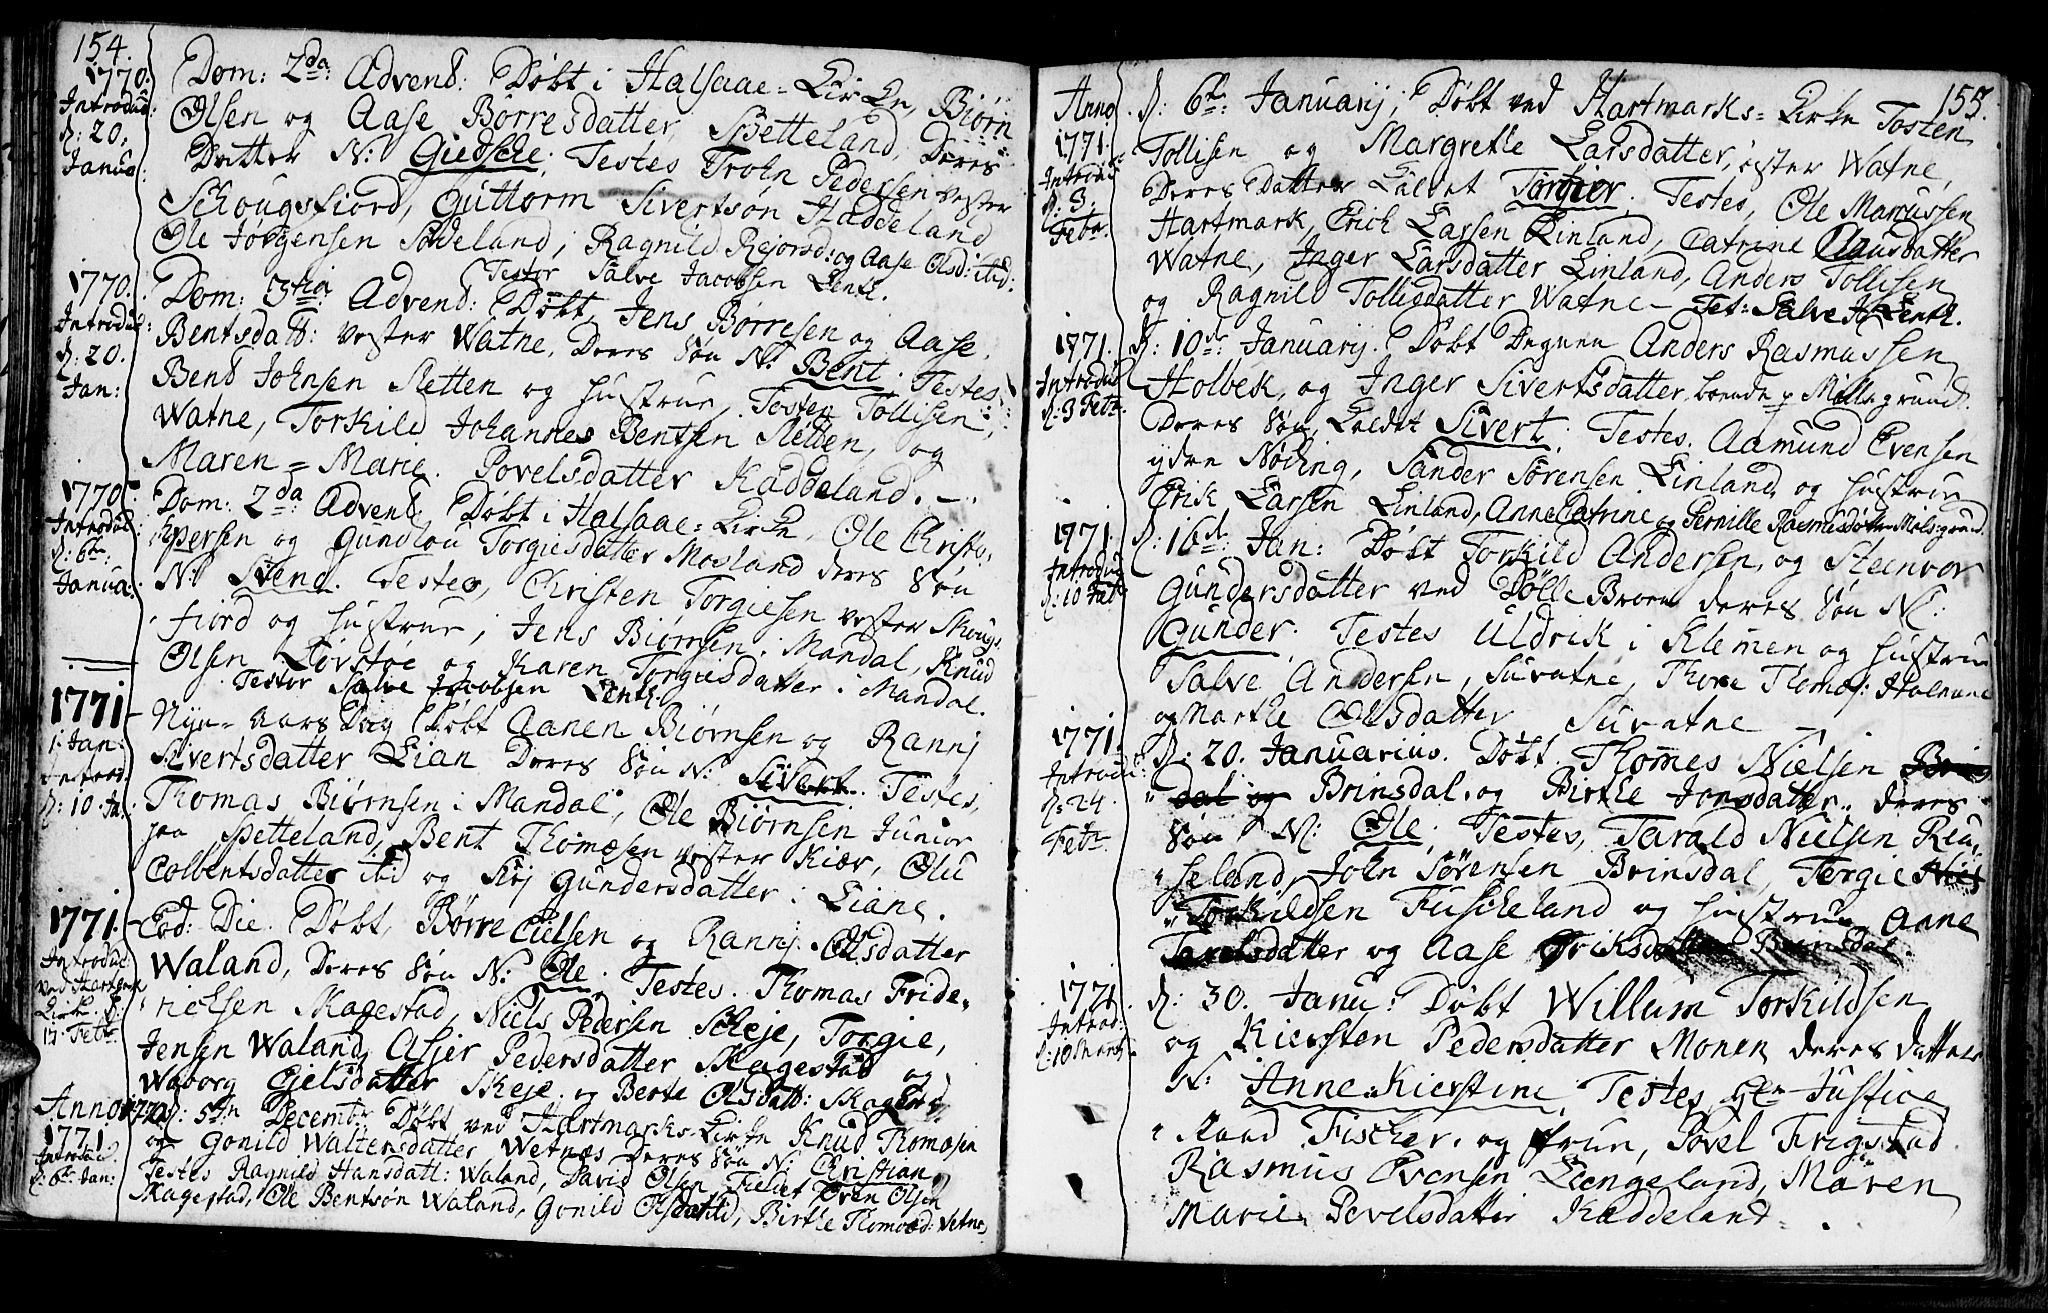 154.
1770.
Introdus:
d: 20.
Janua:
Dom: 2da Advend: Døbt i Halsaae= Kirke, Biørn
Olsen og Aase Børresdatter, Spetteland, Deres
Datter N: Giedske. Testes Troen Pedersen vester
Schougsfiord, Guttorm Sivertsøn Haddeland
Ole Jørgensen Sødeland, Ragnild Rejorsd: og Aase Olsd: ibid:
Testor Salve Jacobsen Lentz.
1770.
Introdus:
d: 20.
Jan:
Dom: 3tia Advend: Døbt, Jens Børresen og Aase
Bentsdatt: vester Watne, Deres Søn N: Bent. Testes
Bend Johnsen Sletten og Hustrue, Tosten Tollisen,
Watne, Torkild Johannes Bentsen Sletten, og
Maren=Marie Povelsdatter Kaddeland.
1770.
Introdus:
d: 6te
Janua:
Dom: 2da Advend: Døbt i Halsaae=Kirke, Ole Christo,
phersen og Gundlou Torgiesdatter Mosland deres Søn
N: Svend. Testes, Christen Torgiesen vester Skougs
fiord og Hustrue, Jens Biørnsen i Mandal, Knud
Olsen Løvstøe og Karen Torgiesdatter i Mandal.
Testor Salve Jacobsen Lentz.
1771
1: Jan:
Introd:
d: 10 Fe.
Nyu-Aars Dag Døbt Aanen Biørnsen og Rannj
Sivertsdatter Lian Deres Søn N: Sivert. Testes,
Thomas Biørnsen i Mandal, Ole Biørnsen Junior
paa Spetteland, Bent Thomæsen vester Kiær, Olu
Colbentsdatter ibid og Siri Gundersdatter i Liane.
1771.
Introdus:
ved Hartmark
Kirke d:
17. Febr.
Eod: Die. Døbt, Børre Eielsen og Rannj Olsdatter
Waland, Deres Søn N: Ole. Testes. Thomas Fride,
richsen Skagestad, Niels Pedersen Scheje, Torgie,
Jensen Waland, Asjer Pedersdatter Skagestad og
Waborg Ejelsdatter Skeje og Berte Olsdatt: Skagest:
Anno 1770
1771.
Introdus:
d: 6te Jan:
d: 5tn Decembr Døbt ved Hartmarks Kirke Knud Thomæsen
og Gonild Waltersdatter Wetnæs Deres Søn N: Christian
Testes Ragnild Hansdatt: Waland, David Olsen Fieldet Even Olsen
Skagestad, Ole Bentsøn Waland, Gonild Olsdatt: ibid, Birthe Thomæd: Vetne,
155.
Anno
1771.
Introdus
d: 3.
Febr.
d: 6te Januarij, Døbt ved Hartmarks= Kirke Tosten
Tollisen og Margrethe Larsdatter, øster Watne,
Deres Datter Kaldet Torgier. Testes, Ole Marcussen
Hartmark, Erich Larsen Linland, Catrine Clausdatter
Watne, Inger Larsdatter Linland, Anders Tollisen
og Ragnild Tollisdatter Watne - Tet: Salve J: Lentz.
1771.
Introdus
d: 3 Febr.
d: 10de Januarij. Døbt Degnen Anders Rasmussen
Holbek, og Inger Sivertsdatter, boende p Mølle grund.
Deres Søn, Kaldet Sivert. Testes. Aamund Evensen
ydre Nøding, Sander Sørensen Linland, og Hustrue
Erik Larsen Linland, Anne Catrine og Pernille Rasmusdøtter Møls grund
1771.
Introdus
d: 10 Feb
d: 16de Jan: Døbt Torkild Andersen, og Steenvor
Gundersdatter ved Dølle Broen deres Søn N:
Gunder. Testes Uldrik i Klemen og Hustrue
Salve Andersen, Suvatne, Thore Thomas: Holmene
og Marthe Olsdatter Suvatne
1771.
Introdu:
d: 24.
Febr.
d: 20. Januarius. Døbt. Thomes Nielsen Brins
dal og Brinsdal, og Birthe Jonsdatter, deres
Søn N: Ole. Testes, Tarald Nielsen Reu,
seland, John Sørensen Brinsdal, Tergie Niels
Torkildsen Fuscheland og Hustrue Anne
Tarelsdatter og Aase Eriksdatter Brinsdal.
1771.
Introd:
d: 10 Marts
d: 30. Janu: Døbt Willum Torkildsen
og Kiersten Pedersdatter Monen deres datter
N: Anne Kierstine. Testes, Hr Justice
Raad Fischer, og frue, Povel Trygstad
Rasmus Evensen Lengeland, Maren
Marie Pevelsdatter Kaddeland